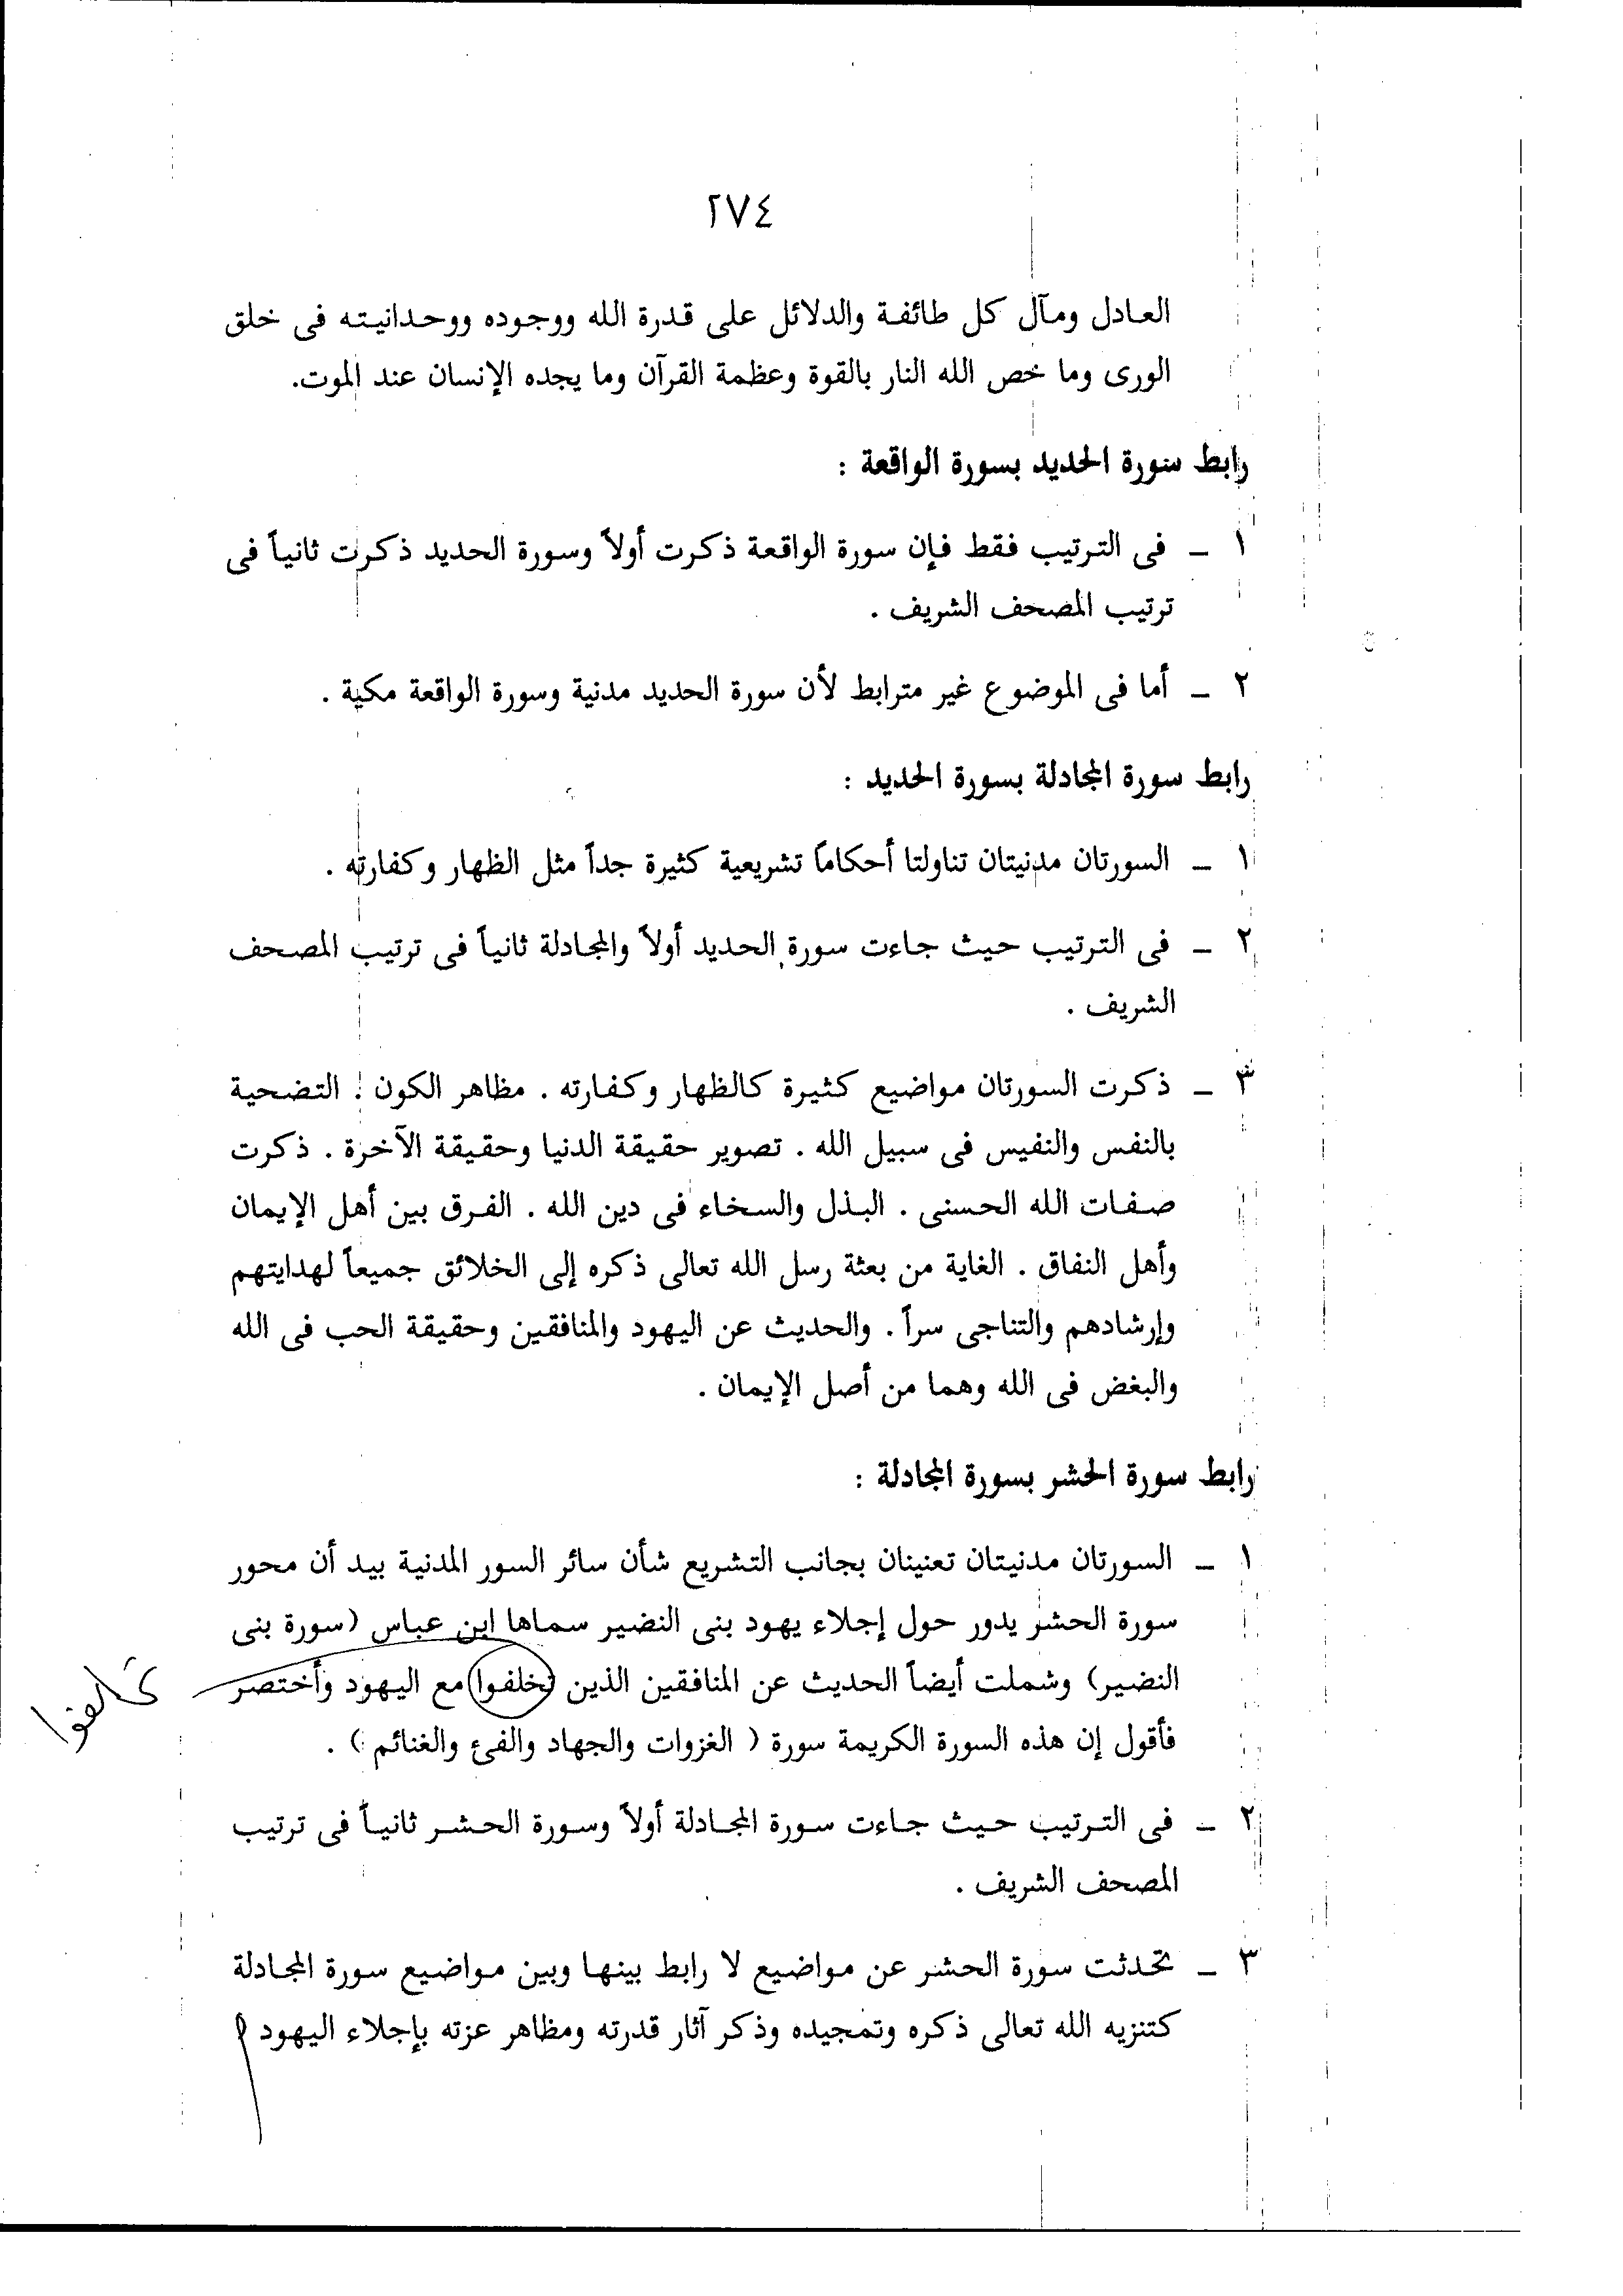 ٢٧٤
العادل ومآل كل طائفة والدلائل على قدرة الله ووجوده ووحدانيته فى خلق
الورى وما خص الله النار بالقوة وعظمة القرآن وما يجده الإنسان عند الموت.
رابط سورة الحديد بسورة الواقعة :
١ ـ فى الترتيب فقط فإن سورة الواقعة ذكرت أولاً وسورة الحديد ذكرت ثانياً فى
ترتيب المصحف الشريف .
٢ ـ أما فى الموضوع غير مترابط لأن سورة الحديد مدنية وسورة الواقعة مكية .
رابط سورة المجادلة بسورة الحديد :
١ ـ السورتان مدنيتان تناولتا أحكاماً تشريعية كثيرة جداً مثل الظهار وكفارته .
٢ ـ فى الترتيب حيث جاءت سورة الحديد أولاً والمجادلة ثانياً فى ترتيب المصحف
الشريف .
٣ ـ ذكرت السورتان مواضيع كثيرة كالظهار وكفارته . مظاهر الكون . التضحية
بالنفس والنفيس فى سبيل الله . تصوير حقيقة الدنيا وحقيقة الآخرة . ذكرت
صفات الله الحسنى . البذل والسخاء فى دين الله . الفرق بين أهل الإيمان
وأهل النفاق . الغاية من بعثة رسل الله تعالى ذكره إلى الخلائق جميعاً لهدايتهم
وإرشادهم والتناجى سراً . والحديث عن اليهود والمنافقين وحقيقة الحب فى الله
والبغض فى الله وهما من أصل الإيمان .
رابط سورة الحشر بسورة المجادلة :
١ ـ السورتان مدنيتان تعنينان بجانب التشريع شأن سائر السور المدنية بيد أن محور
سورة الحشر يدور حول إجلاء يهود بنى النضير سماها ابن عباس (سورة بنى
النضير) وشملت أيضاً الحديث عن المنافقين الذين تخلفوا مع اليهود وأختصر
تحالفوا
فأقول إن هذه السورة الكريمة سورة ( الغزوات والجهاد والفئ والغنائم ) .
٢ ـ فى الترتيب حيث جاءت سورة المجادلة أولاً وسورة الحشر ثانياً فى ترتيب
المصحف الشريف .
٣ ـ تحدثت سورة الحشر عن مواضيع لا رابط بينها وبين مواضيع سورة المجادلة
كتنزيه الله تعالى ذكره وتمجيده وذكر آثار قدرته ومظاهر عزته بإجلاء اليهود